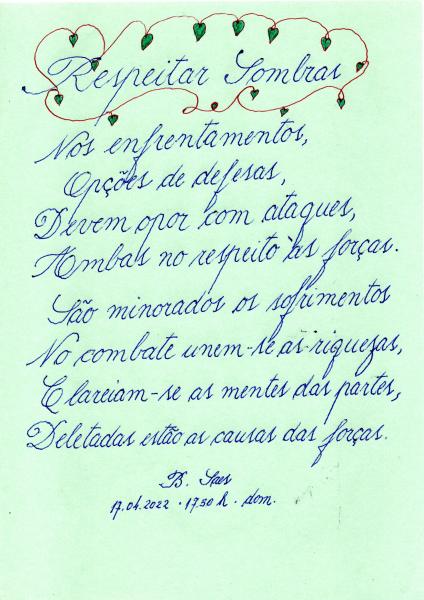 Respeitar Sombras
Nos enfrentamentos,
Opções de defesas,
Devem opor com ataques,
Ambas no respeito às forças.
São minorados os sofrimentos
No combate unem-se as riquezas,
Clareiam-se as mentes das partes,
Deletadas estão as causas das forças.
B. Saes
17.04.2022 . 17:50 h . dom.